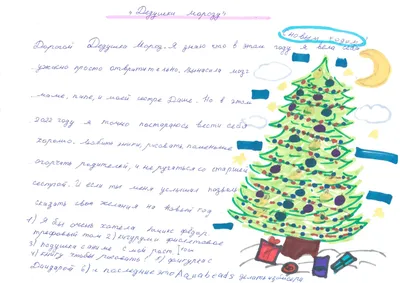 "Дедушки морозу"
новым годом!
Дорогой Дедушка Мороз. Я знаю что в этом году я вела себя
ужасно просто отвратительно, выносила мозг
маме, папе, и моей сестре Даше. Но в этом
2022 году я точно постараюсь вести себя
хорошо. больше книг, рисовать поменьше
огорчать родителей, и не ругаться со старшей
сестрой. И если ты меня услышал позволь
сказать свои желания на Новый год
1) Я бы очень хотела комикс фёдор
трефовый том 2) кигуруми фиолетовое
3) подушки с аниме с май раст.
4) книгу чтобы рисовать 5) фигурку
6) и последнее это Aquabeads